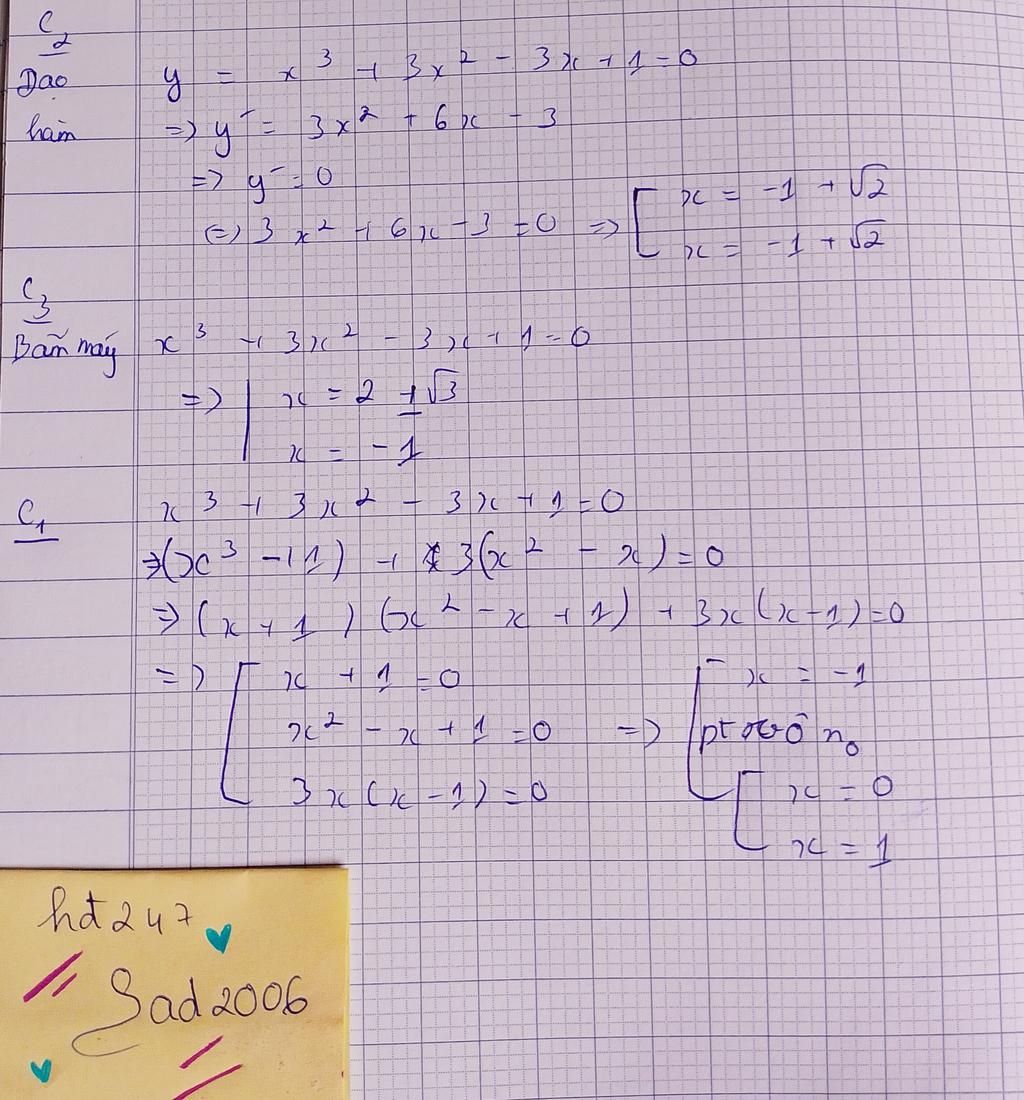 C2
Đạo hàm
y = x³ + 3x² - 3x + 1 = 0
=> y' = 3x² + 6x - 3
=> y' = 0
(=) 3x² + 6x - 3 = 0 => [ x = -1 + √2
x = -1 + √2
C3
Bấm máy
x³ + 3x² - 3x + 1 = 0
=> | x = 2 ± √3
x = -1
C1
x³ + 3x² - 3x + 1 = 0
=> (x³ + 1) + 3(x² - x) = 0
=> (x + 1) (x² - x + 1) + 3x(x - 1) = 0
=> [ x + 1 = 0 [ x = -1
x² - x + 1 = 0 => pt vô n0
3x(x - 1) = 0 [ x = 0
x = 1
hđ247
Sad2006